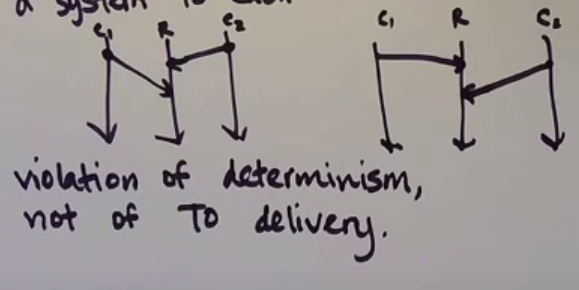 a system to each
C₁ R C₂ C₁ R C₂
violation of determinism,
not of TO delivery.